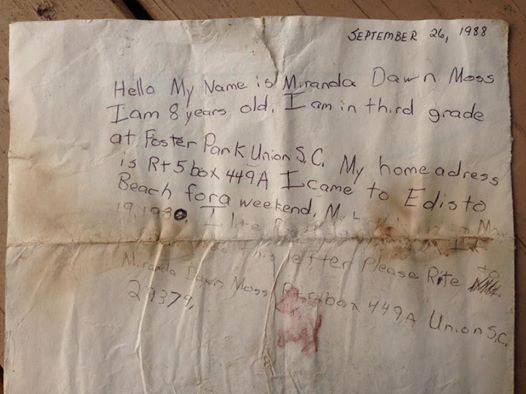 SEPTEMBER 26, 1988
Hello My Name is Miranda Dawn Moss
I am 8 years old. I am in third grade
at Foster Park Union S.C. My home adress
is Rt 5 box 449A I came to Edisto
Beach for a weekend. My
19, 1980. I
letter Please Rite to
Miranda Dawn Moss Rt 5 box 449A Union S.C.
29379,